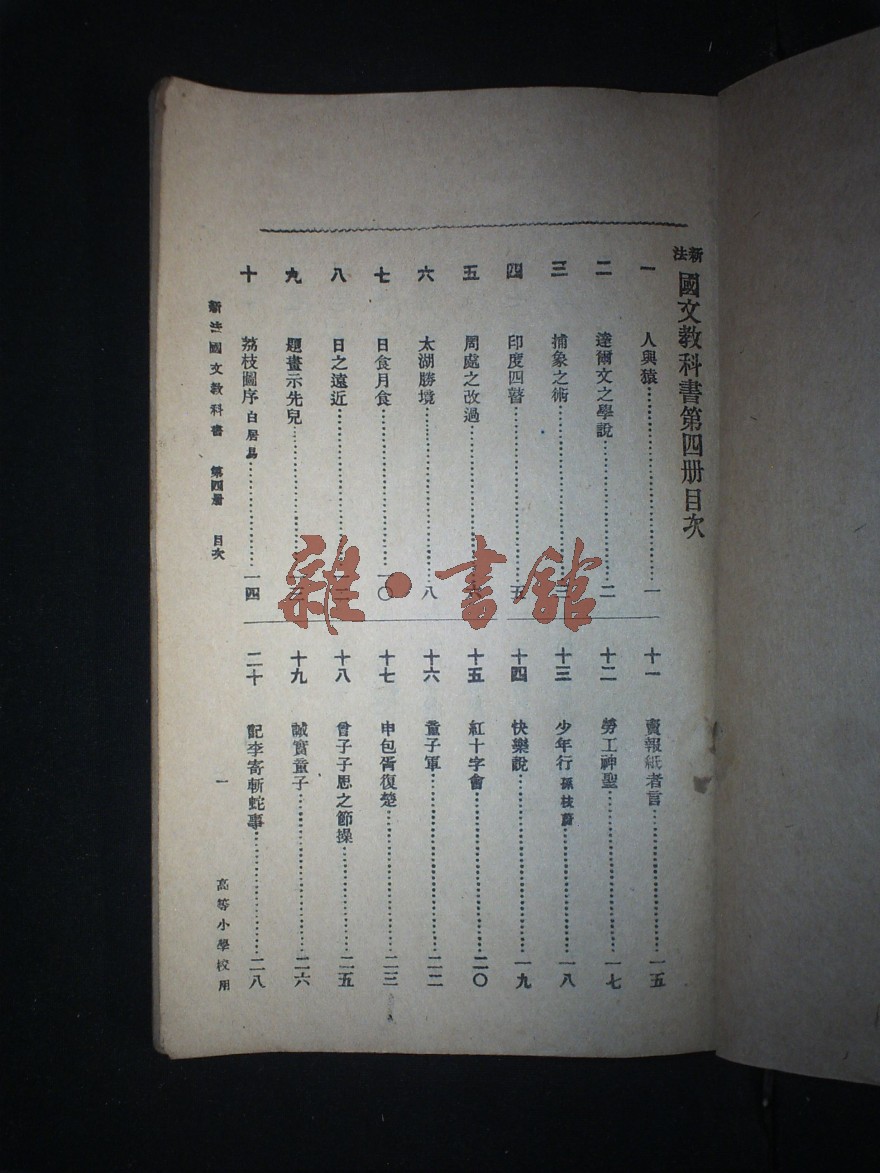 新法國文教科書第四册目次
一 人與猿 一
二 達爾文之學說 二
三 捕象之術 三
四 印度四瞽 五
五 周處之改過
六 太湖勝境 八
七 日食月食 一〇
八 日之遠近 一二
九 題畫示先兒
十 荔枝圖序 白居易 一四
十一 賣報紙者言 一五
十二 勞工神聖 一七
十三 少年行 孫枝蔚 一八
十四 快樂說 一九
十五 紅十字會 二〇
十六 童子軍 二二
十七 申包胥復楚 二三
十八 曾子子思之節操 二五
十九 誠實童子 二六
二十 記李寄斬蛇事 二八
新法國文教科書 第四册 目次 一 高等小學校用
雜·書館